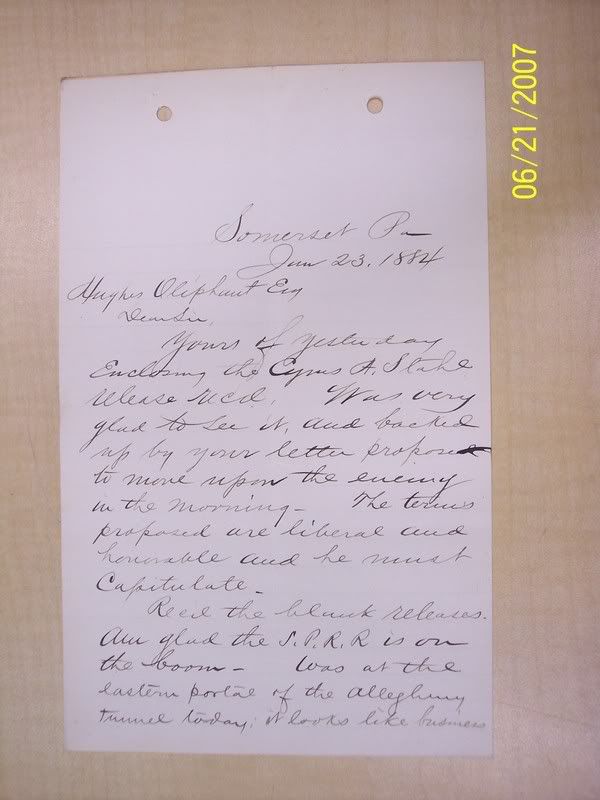 Somerset Pa
Jan 23, 1884
Hughes Oliphant Esq
Dear Sir,
Yours of yesterday
Enclosing the Cyrus A. Stahl
release recd. Was very
glad to see it, and backed
up by your letter propose
to move upon the enemy
in the morning - The terms
proposed are liberal and
honorable and he must
Capitulate -
Recd the blank releases.
Am glad the S.P.R.R is on
the boom - Was at the
eastern portal of the Allegheny
tunnel today; it looks like business
06/21/2007